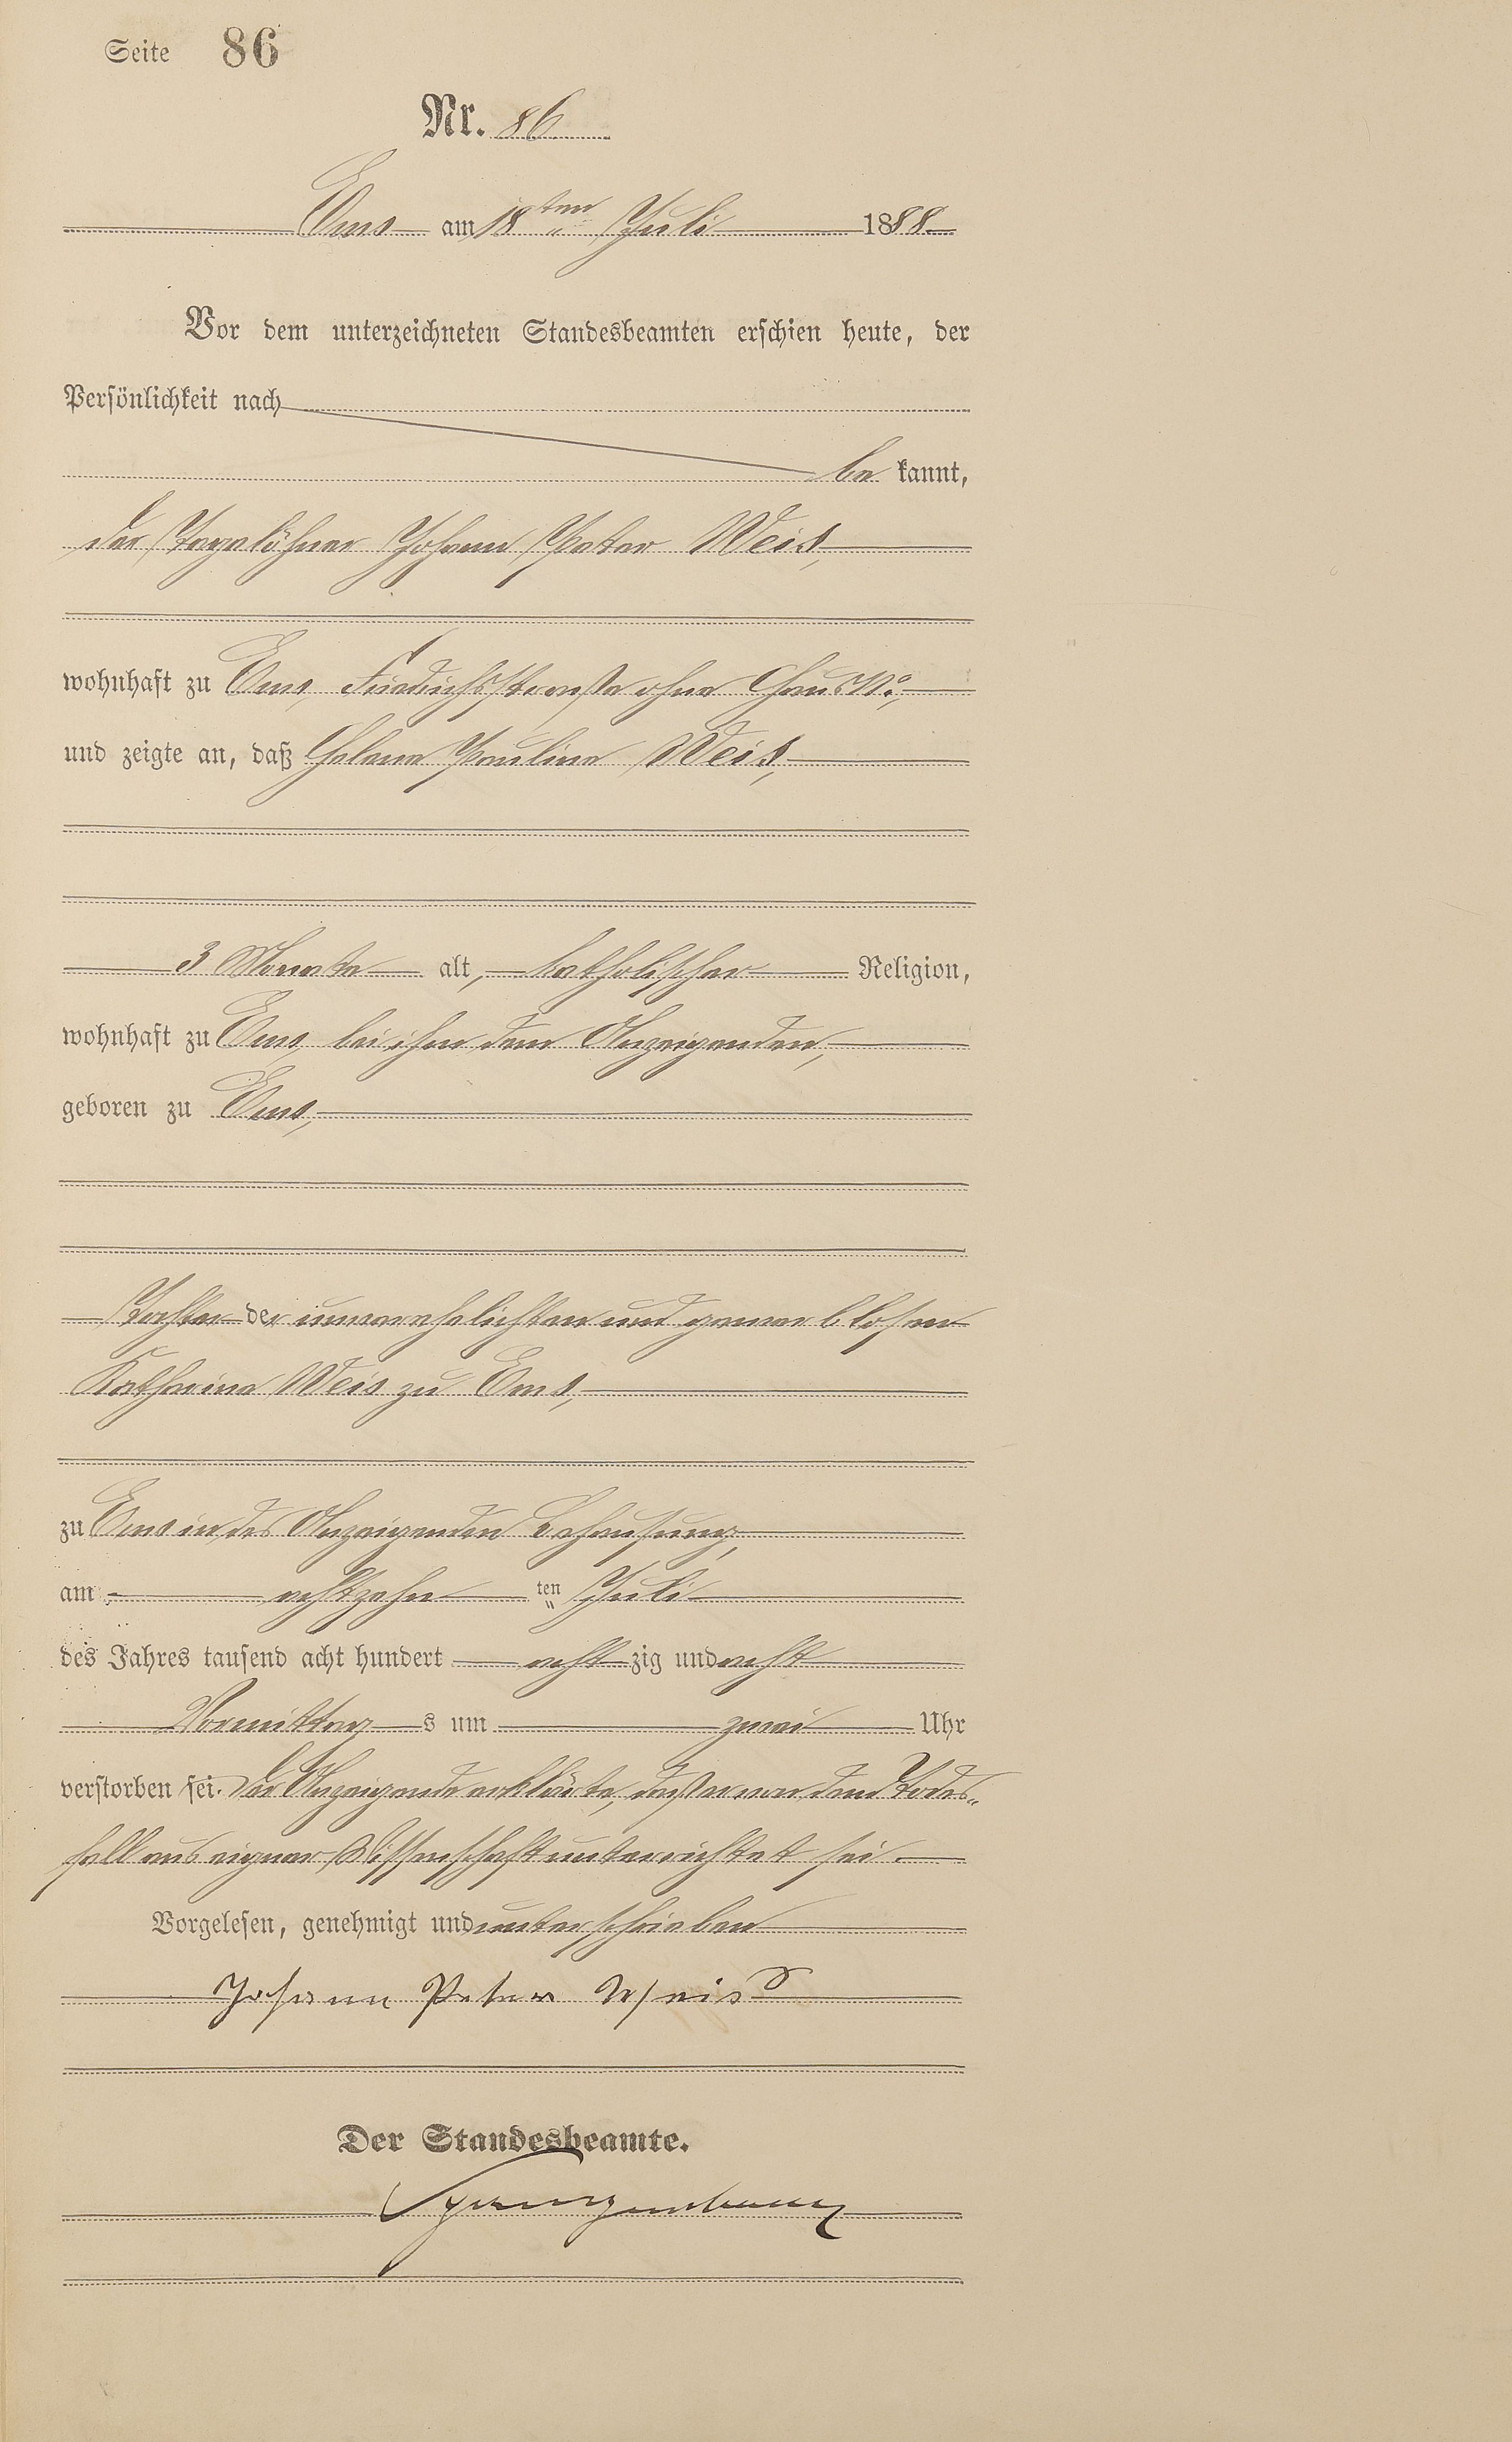 Seite 86
Nr. 86
Ems am 18ten Juli 1888
Vor dem unterzeichneten Standesbeamten erschien heute, der
Persönlichkeit nach
be kannt,
der Tagelöhner Johann Peter Weis,
wohnhaft zu Ems, Friedrichsstraße ohne Haus No.,
und zeigte an, daß Helene Pauline Weis,
3 Monate alt, katholischer Religion,
wohnhaft zu Ems, bei ihm dem Anzeigenden,
geboren zu Ems,
Tochter der unverehelichten und gewerblosen
Katharina Weis zu Ems,
zu Ems in des Anzeigenden Behausung,
am achtzehn ten Juli
des Jahres tausend acht hundert acht zig und acht
Vormittag s um zwei Uhr
verstorben sei. Der Anzeigende erklärte, daß er von dem Todes-
fall aus eigener Wissenschaft unterrichtet sei.
Vorgelesen, genehmigt und unterschrieben
Johann Peter Weis
Der Standesbeamte.